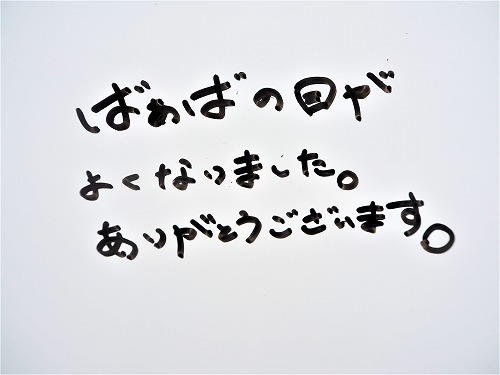 ばぁばの回が
よくなりました。
ありがとうございます。